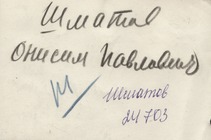 Шматов
Онисим Павлович
Ш
Шматов
24703